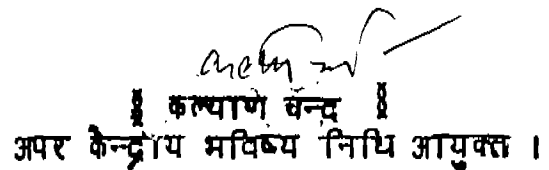 § कल्याण चन्द §
अपर केन्द्रीय भविष्य निधि आयुक्त ।